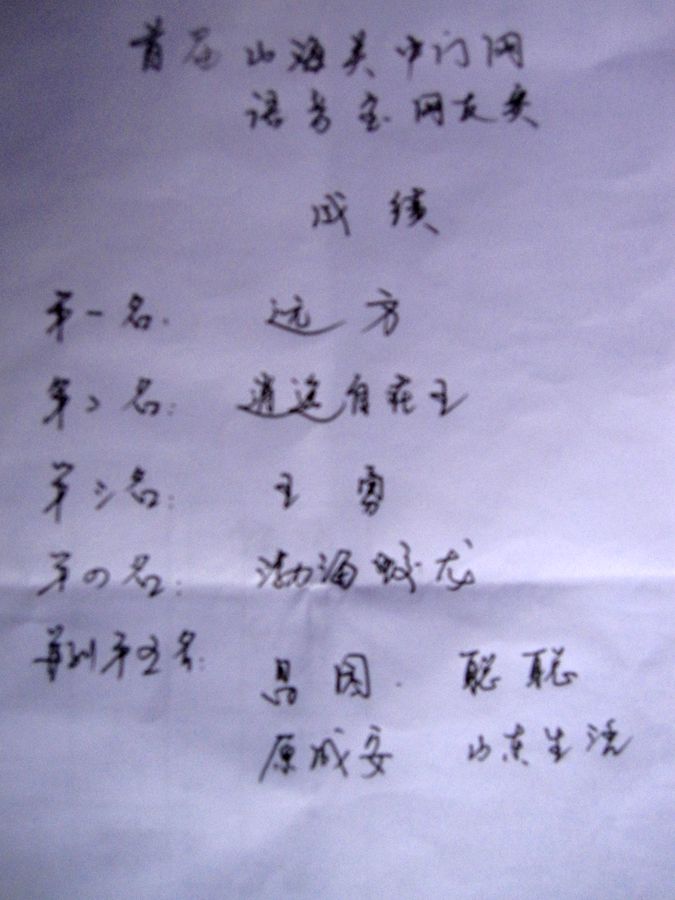 首届山海关中门网
语音室网友类
成绩
第一名. 远方
第二名: 逍遥自在王
第三名: 王勇
第四名: 渤海蛟龙
并列第五名: 昌图. 聪聪
原成安 山东生活